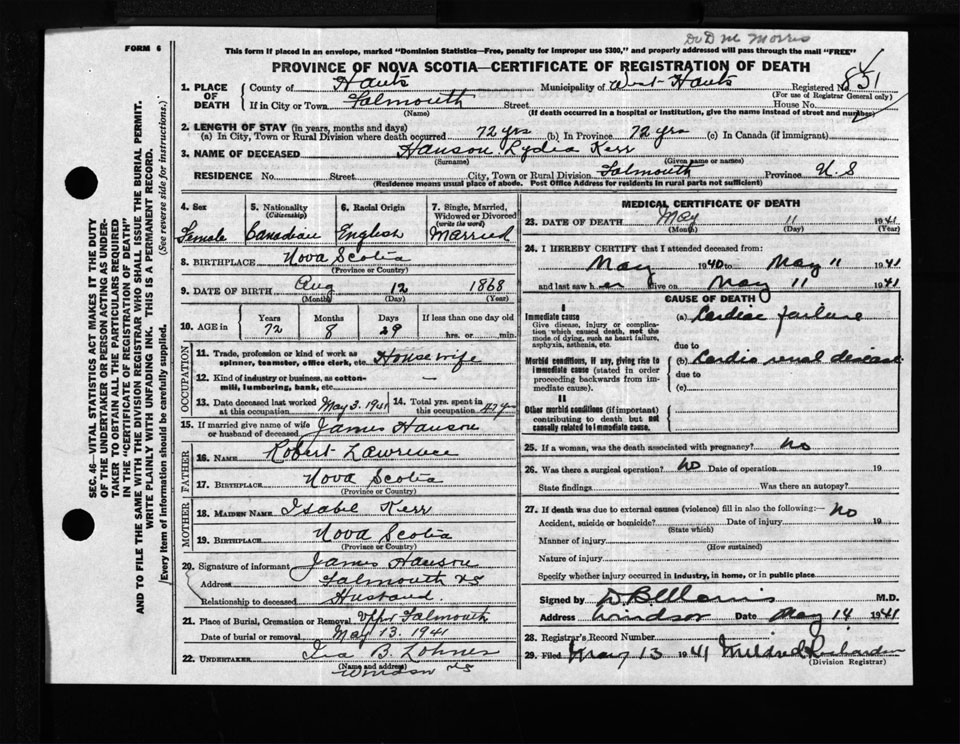 Dr D M Morris
FORM 6
This form if placed in an envelope, marked "Dominion Statistics—Free, penalty for improper use $300," and properly addressed will pass through the mail "FREE"
PROVINCE OF NOVA SCOTIA—CERTIFICATE OF REGISTRATION OF DEATH
851
1. PLACE OF DEATH
County of Hants Municipality of West Hants Registered No.
(For use of Registrar General only)
If in City or Town Falmouth Street House No.
(Name) (If death occurred in a hospital or institution, give the name instead of street and number)
2. LENGTH OF STAY (in years, months and days)
(a) In City, Town or Rural Division where death occurred 72 yrs (b) In Province 72 yrs (c) In Canada (if immigrant)
3. NAME OF DECEASED Hanson Lydia Kerr
(Surname) (Given name or names)
RESIDENCE No. Street City, Town or Rural Division Falmouth Province N.S
(Residence means usual place of abode. Post Office Address for residents in rural parts not sufficient)
4. Sex Female
5. Nationality (Citizenship) Canadian
6. Racial Origin English
7. Single, Married, Widowed or Divorced (write the word) Married
8. BIRTHPLACE Nova Scotia
(Province or Country)
9. DATE OF BIRTH Aug 12 1868
(Month) (Day) (Year)
10. AGE in Years 72 Months 8 Days 29 If less than one day old
hrs. or min.
OCCUPATION
11. Trade, profession or kind of work as spinner, teamster, office clerk, etc. Housewife
12. Kind of industry or business, as cotton-mill, lumbering, bank, etc. —
13. Date deceased last worked at this occupation May 3. 1941 14. Total yrs. spent in this occupation
15. If married give name of wife or husband of deceased James Hanson
FATHER
16. NAME Robert Lawrence
17. BIRTHPLACE Nova Scotia
(Province or Country)
MOTHER
18. MAIDEN NAME Isabel Kerr
19. BIRTHPLACE Nova Scotia
(Province or Country)
20. Signature of informant James Hanson
Address Falmouth NS
Relationship to deceased Husband.
21. Place of Burial, Cremation or Removal Uppr Falmouth
Date of burial or removal May 13. 1941
22. UNDERTAKER Ira B. Lohnes
(Name and address)
Windsor NS
MEDICAL CERTIFICATE OF DEATH
23. DATE OF DEATH May 11 1941
(Month) (Day) (Year)
24. I HEREBY CERTIFY that I attended deceased from:
May 1940 to May 11 1941
and last saw her alive on May 11 1941
CAUSE OF DEATH
I
Immediate cause
Give disease, injury or complication which caused death, not the mode of dying, such as heart failure, asphyxia, asthenia, etc.
(a) Cardiac failure
due to
Morbid conditions, if any, giving rise to immediate cause (stated in order proceeding backwards from immediate cause).
(b) Cardio renal disease
due to
(c)
II
Other morbid conditions (if important) contributing to death but not causally related to immediate cause.
25. If a woman, was the death associated with pregnancy? No
26. Was there a surgical operation? No Date of operation 19
State findings Was there an autopsy?
27. If death was due to external causes (violence) fill in also the following:— No
Accident, suicide or homicide? Date of injury 19
(State which)
Manner of injury
(How sustained)
Nature of injury
Specify whether injury occurred in industry, in home, or in public place
Signed by M.D.
Address Windsor Date May 14 1941
28. Registrar's Record Number
29. Filed May 13 1941 Mildred Richardson
(Division Registrar)
SEC. 46—VITAL STATISTICS ACT MAKES IT THE DUTY
OF THE UNDERTAKER OR PERSON ACTING AS UNDERTAKER
TO OBTAIN ALL THE PARTICULARS REQUIRED
IN THE "CERTIFICATE OF REGISTRATION OF DEATH"
AND TO FILE THE SAME WITH THE DIVISION REGISTRAR WHO SHALL ISSUE THE BURIAL PERMIT.
WRITE PLAINLY WITH UNFADING INK. THIS IS A PERMANENT RECORD.
Every item of information should be carefully supplied. (See reverse side for instructions.)